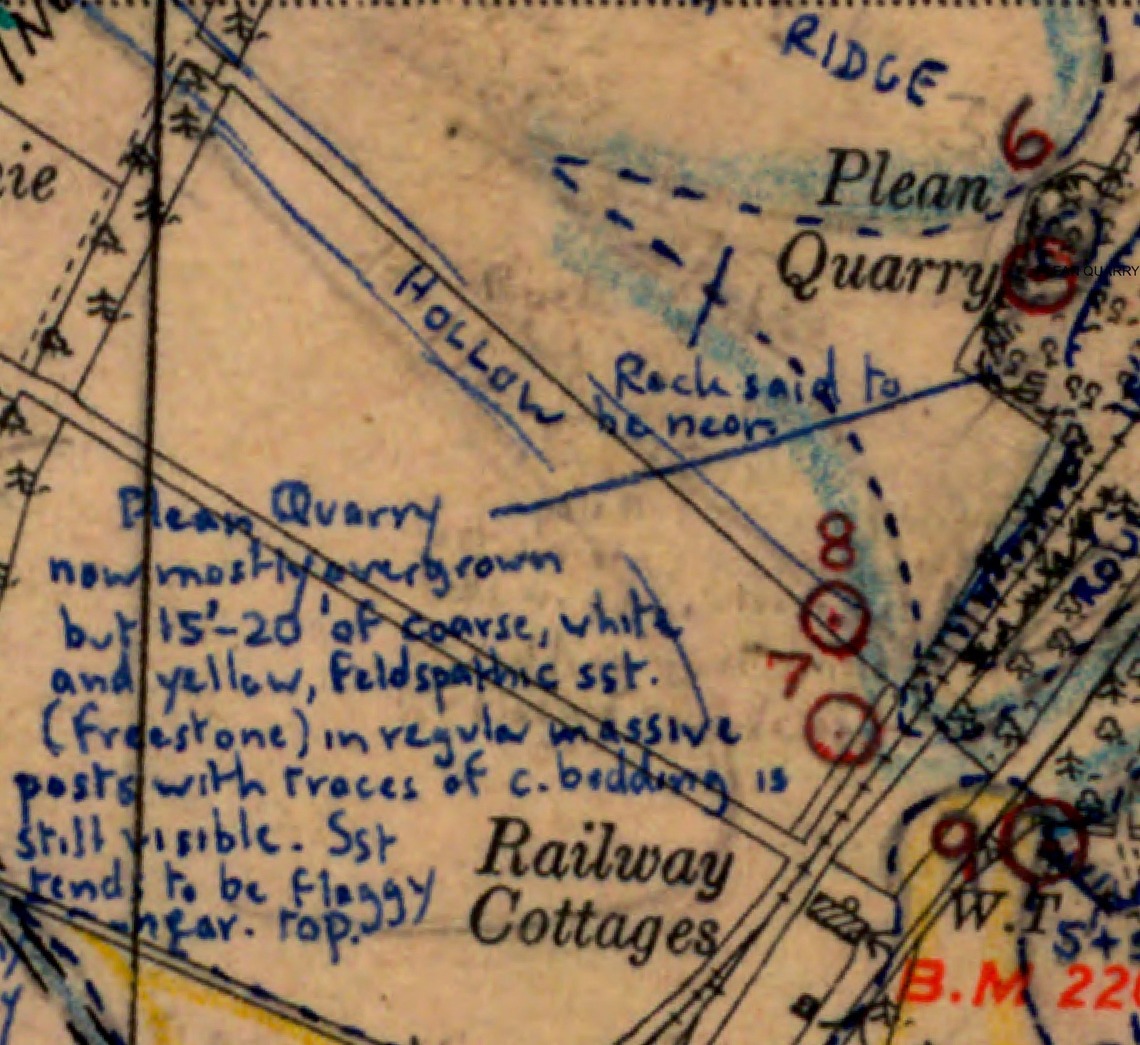 RIDGE
6
Plean
Quarry
HOLLOW
Rock said to
be near.
Plean Quarry
now mostly overgrown
but 15'-20' of coarse, white
and yellow, feldspathic sst.
(freestone) in regular massive
posts with traces of c. bedding is
still visible. Sst
tends to be flaggy
near top.
8
7
9
Railway
Cottages
W.T
B.M 22